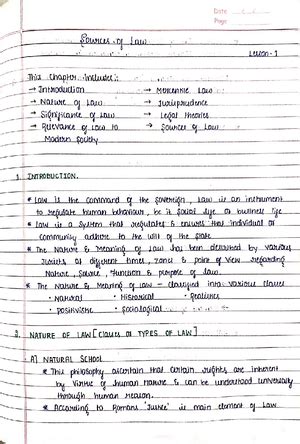 Date
Page
Sources of Law
Lesson - 1
This Chapter Includes :-
→ Introduction → Mercantile Law
→ Nature of Law → Jurisprudence
→ Significance of Law → Legal theories
→ Relevance of Law to → Sources of Law
Modern Society
1. INTRODUCTION.
* Law is the command of the sovereign, Law is an instrument
to regulate human behaviour, be it social life or business life
* Law is a system that regulates & ensures that individual or
community adhere to the will of the state
* The Nature & Meaning of Law has been described by various
Jurists at different times, and point of view regarding
Nature, Source, function & purpose of law.
* The Nature & Meaning of law - classified into various classes
• Natural • Historical • Realistic
• Positivistic • Sociological
2. NATURE OF LAW [Classes or TYPES OF LAW]
A) NATURAL SCHOOL
* This philosophy ascertain that certain rights are inherent
by virtue of human nature & can be understood universally
through human reason.
* According to Romans 'Justice' is main element of Law